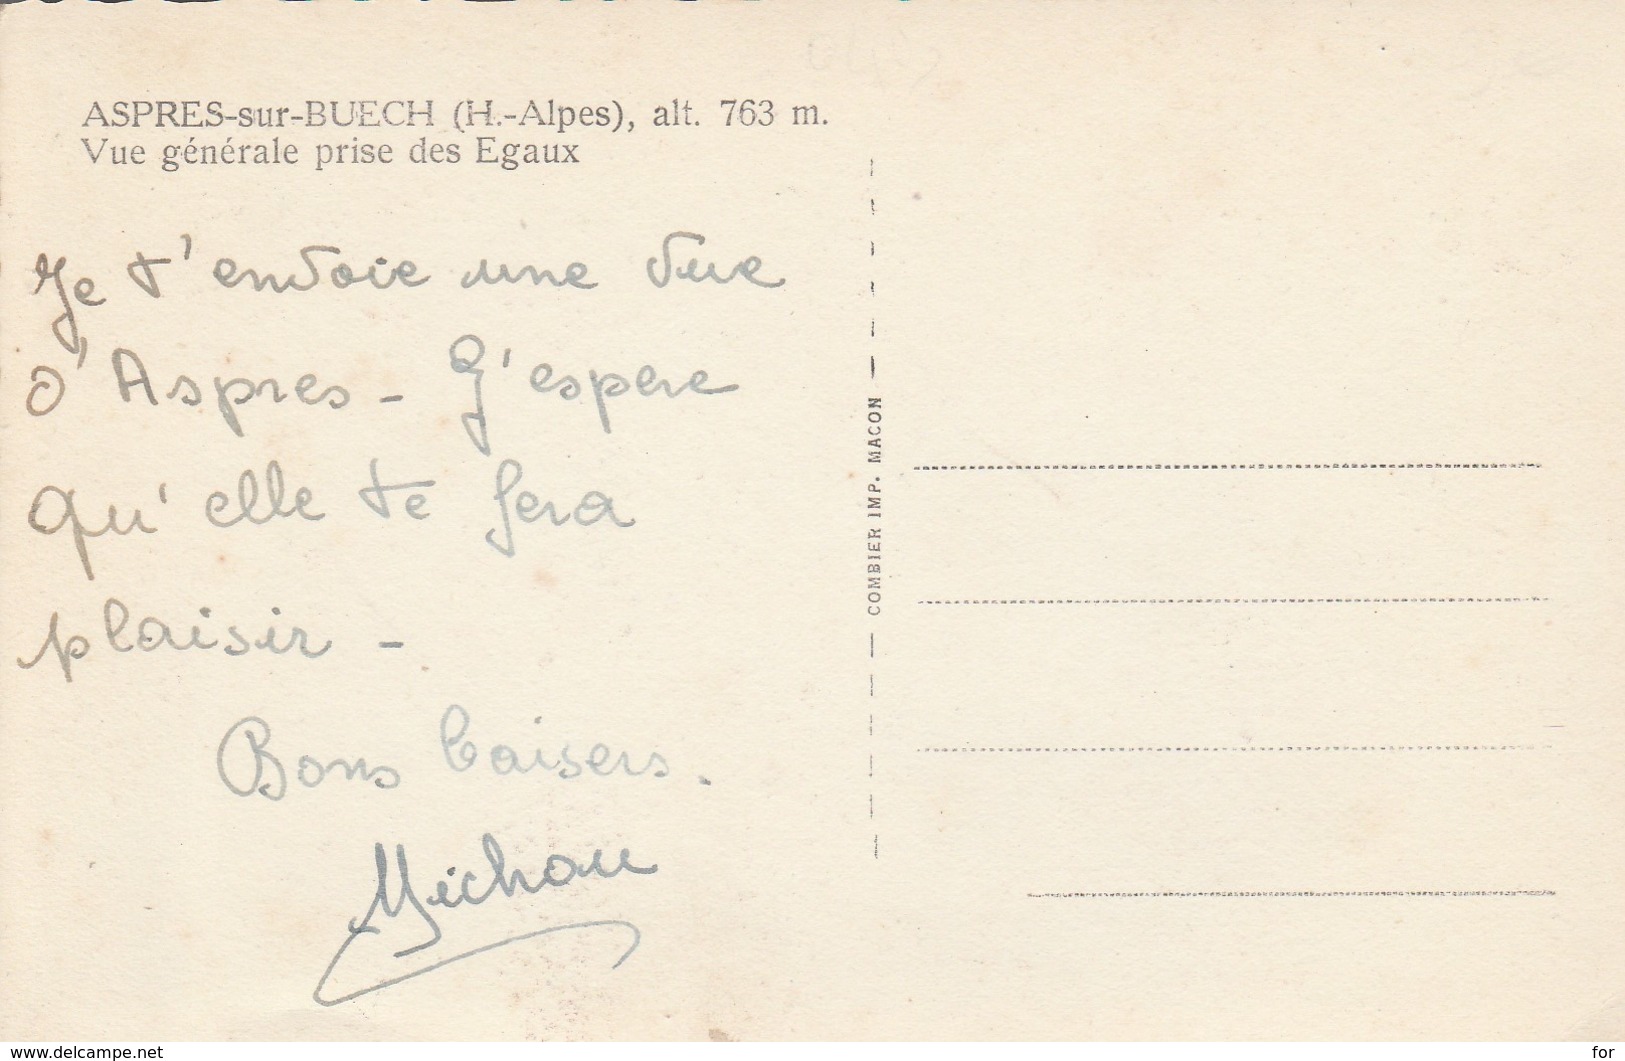 ASPRES-sur-BUECH (H.-Alpes), alt. 763 m.
Vue générale prise des Egaux
Je t'envoie une vue
d'Aspres - J'espere
qu'elle te fera
plaisir -
Bons baisers.
Michou
COMBIER IMP. MACON
www.delcampe.net
for